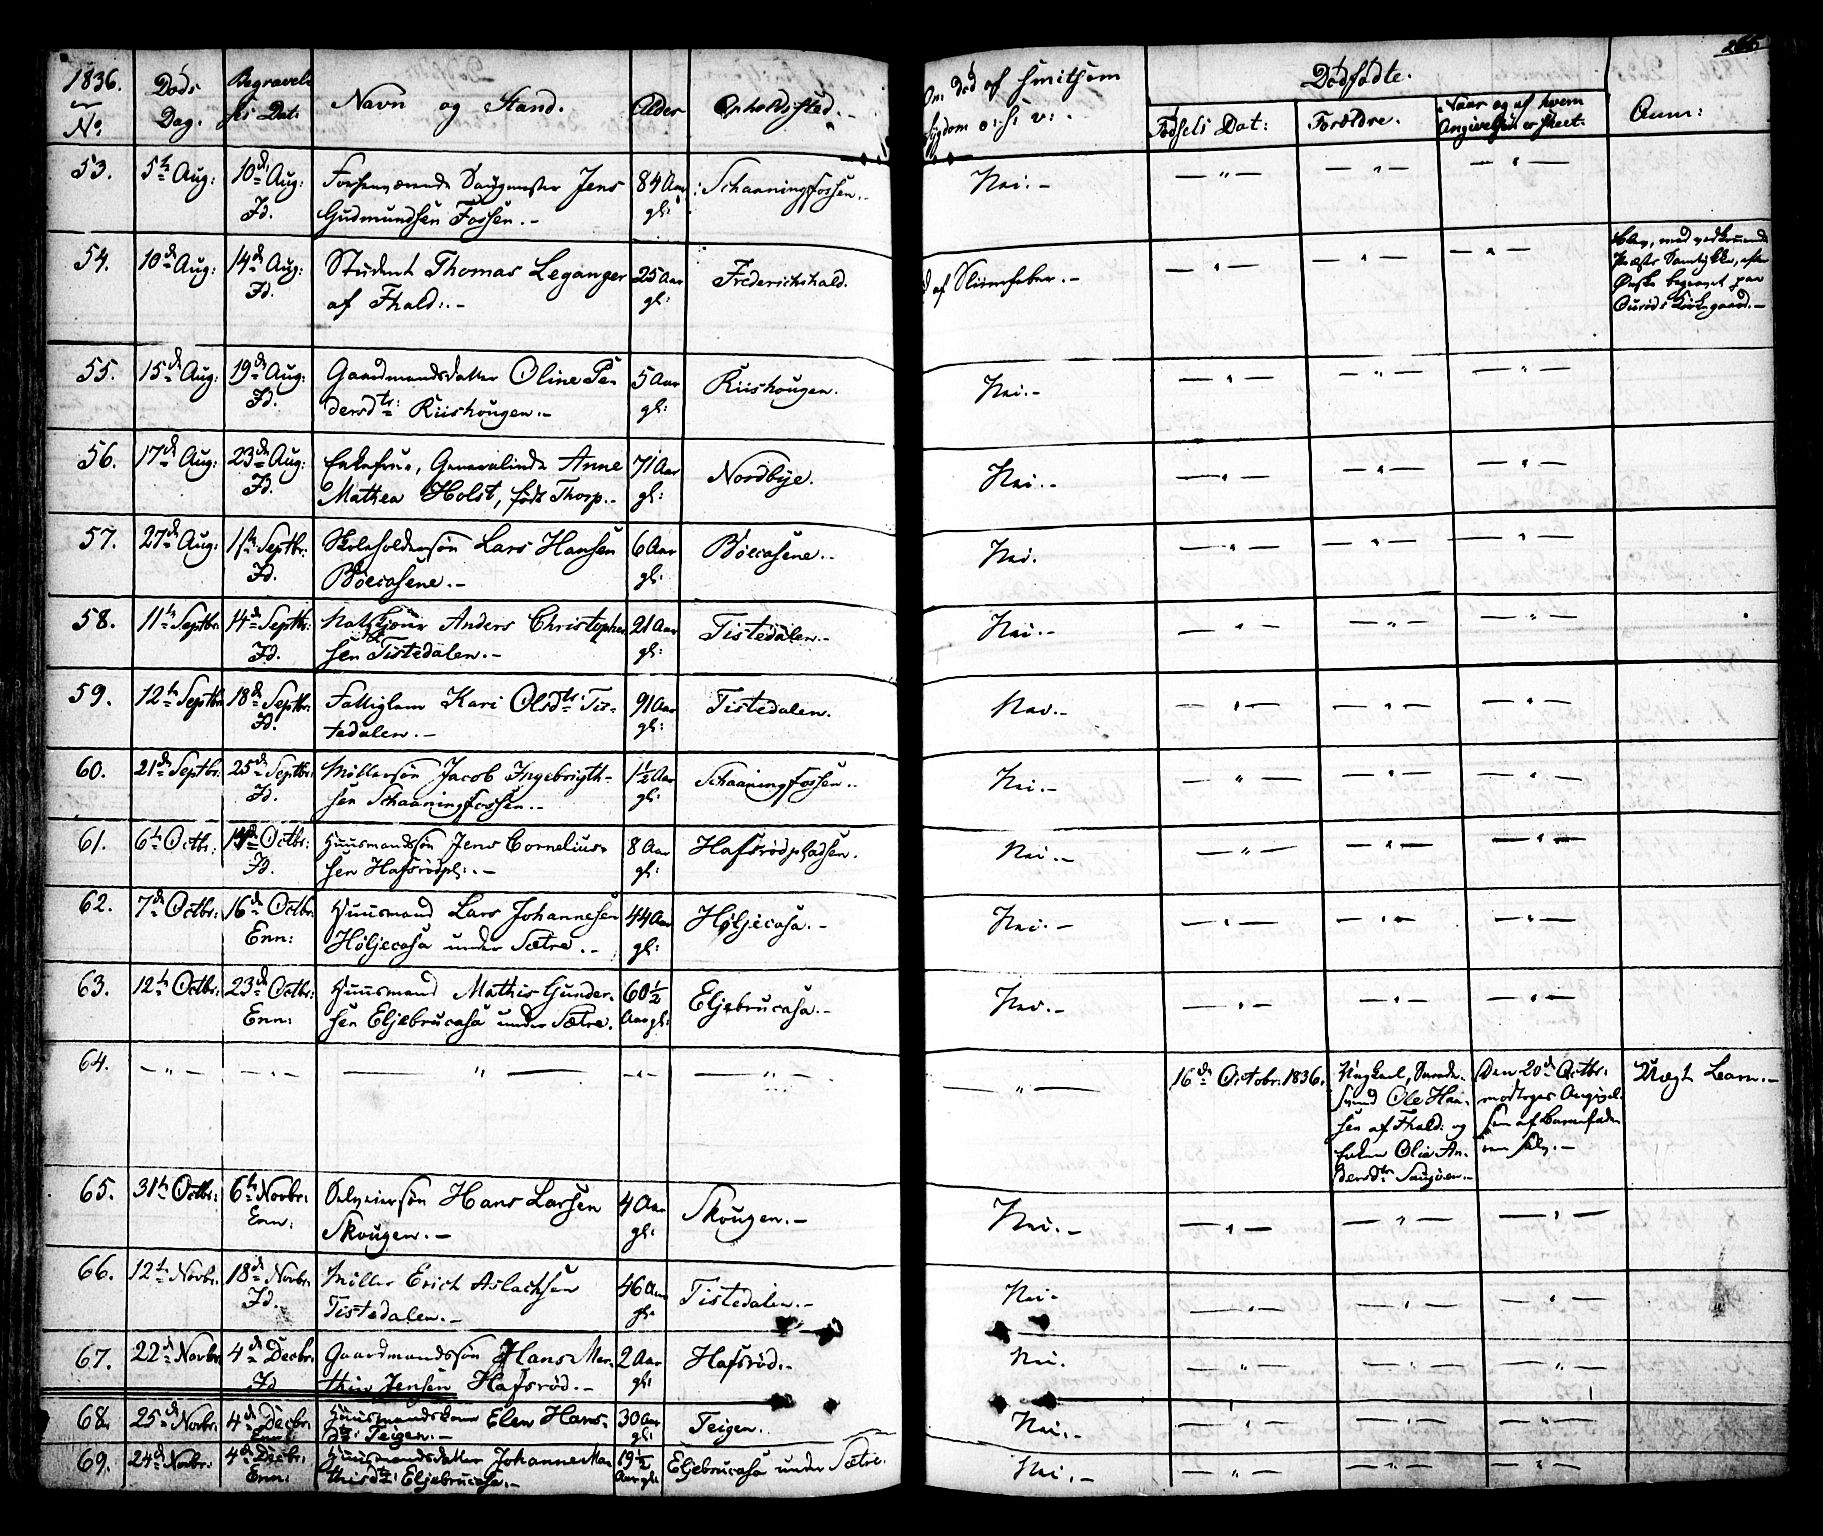 265
1836. Døds Begravel-
No Dag. ses Dat: Navn og Stand. Alder Opholdssted. Om Død af smitsom Dødfødte.
Sygdom o: s: v: Fødsels Dat: Forældre. Naar og af hvem Anm:
Angivelsen er skeet.
53. 5te Aug: 10de Aug: Forhenværende Saugmester Jens 84 Aar Schaaningfossen. Nei. — " — — " — — " —
Id. Gudmundsen Fossen. gl:
54. 10de Aug: 14de Aug: Student Thomas Leganger 25 Aar Frederichshald. af Sliimfeber. — " — — " — — " — Blev, med vedkommende
Id. af Fhald: gl: Præsts Samtykke, efter
Ønske begravet paa
Kirkegaard.
55. 15de Aug: 19de Aug: Gaardmandsdatter Oline Pe- 5 Aar Riishougen. Nei. — " — — " — — " —
Id. dersdtr: Riishougen. gl:
56. 17de Aug: 23de Aug: Enkefrue, Generalinde Anne 71 Aar Nordbye. Nei. — " — — " — — " —
Id. Mathea Holst, født Thorp. gl:
57. 27de Aug: 1ste Septbr: Skoleholdersøn Lars Hansen 6 Aar Böecasene. Nei. — " — — " — — " —
Id. Böecasene. gl:
58. 11te Septbr: 14de Septbr: Anders Christopher- 21 Aar Tistedalen. Nei. — " — — " — — " —
Id. sen Tistedalen. gl:
59. 12te Septbr: 18de Septbr: Fattiglem Kari Olsdtr: Tis- 91 Aar Tistedalen. Nei. — " — — " — — " —
Id. tedalen. gl:
60. 21de Septbr: 25de Septbr: Møllersøn Jacob Ingebrigth- 1½ Aar Schaaningfossen. Nei. — " — — " — — " —
Id. sen Schaaningfossen. gl:
61. 6te Octbr: Octbr: Huusmandssøn Jens Cornelius- 8 Aar Hafsrødpladsen. Nei. — " — — " — — " —
Id. sen Hafsrødpl: gl:
62. 7de Octbr: 16de Octbr: Huusmand Lars Johannesen 44 Aar Höljecasa. Nei. — " — — " — — " —
Enn: Höljecasa under Sætre. gl:
63. 12te Octbr: 23de Octbr: Huusmand Mathis Gunder- 60½ Eljebrucasa. Nei. — " — — " — — " —
Enn: sen Eljebrucasa under Sætre. Aar gl:
64. — " — — " — — " — — " — — " — — " — 16de Octobr: 1836. Ungkarl, Ole Han- Den 20de Octbr: Uægte Barn.
sen af Fhald: og modtoges Angivel-
Olia An- sen af Barnefaderen
dersdtr selv.
65. 31te Octbr: 6te Novbr: Hans Larsen 4 Aar Skougen. Nei. — " — — " — — " —
Enn: Skougen. gl:
66. 12te Novbr: 18de Novbr: Møller Erich Aslachsen 46 Aar Tistedalen. Nei. — " — — " — — " —
Id. Tistedalen. gl:
67. 22de Novbr: 4de Decbr: Gaardmandssøn Hans Mar- 2 Aar Hafsrød. Nei. — " — — " — — " —
Id thin Jensen Hafsrød. gl:
68. 25de Novbr: 4de Decbr: Huusmandskone Elen Hans- 30 Aar Teigen. Nei. — " — — " — — " —
Enn: dtr: Teigen. gl:
69. 24de Novbr: 4de Decbr: Huusmandsdatter Johanne Ma- 19½ Eljebrucasa under Sætre. Nei. — " — — " — — " —
Enn: thisdtr: Eljebrucasa. Aar gl: